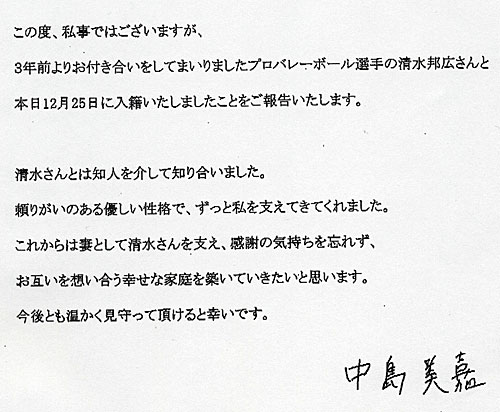 この度、私事ではございますが、
3年前よりお付き合いをしてまいりましたプロバレーボール選手の清水邦広さんと
本日12月25日に入籍いたしましたことをご報告いたします。
清水さんとは知人を介して知り合いました。
頼りがいのある優しい性格で、ずっと私を支えてきてくれました。
これからは妻として清水さんを支え、感謝の気持ちを忘れず、
お互いを想い合う幸せな家庭を築いていきたいと思います。
今後とも温かく見守って頂けると幸いです。
中島美嘉